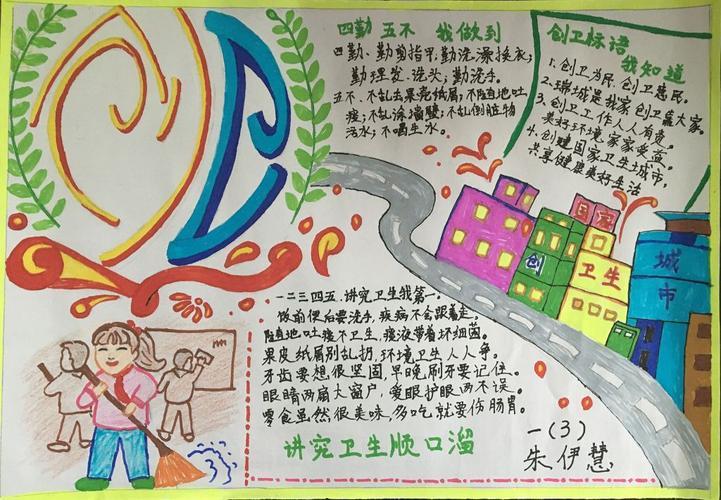 四勤 五不 我做到
四勤、勤剪指甲;勤洗澡换衣;
勤理发、洗头;勤洗手。
五不、不乱丢果壳纸屑;不随地吐
痰;不乱涂墙壁;不乱倒脏物
污水;不喝生水。
创卫标语
我知道
1、创卫为民,创卫惠民。
2、瑞城是我家 创卫靠大家。
3、创卫工作人人有责。
美好环境家家受益。
4、创建国家卫生城市,
共享健康美好生活
国家
创
卫生
城市
一二三四五.讲究卫生我第一。
饭前便后要洗手,疾病不会跟着走。
随地吐痰不卫生,痰液带着坏细菌。
果皮纸屑别乱扔,环境卫生人人争。
牙齿要想很坚固,早晚刷牙要记住。
眼睛两扇大窗户,爱眼护眼两不误。
零食虽然很美味,多吃就要伤肠胃。
讲究卫生顺口溜
一(3)
朱伊慧